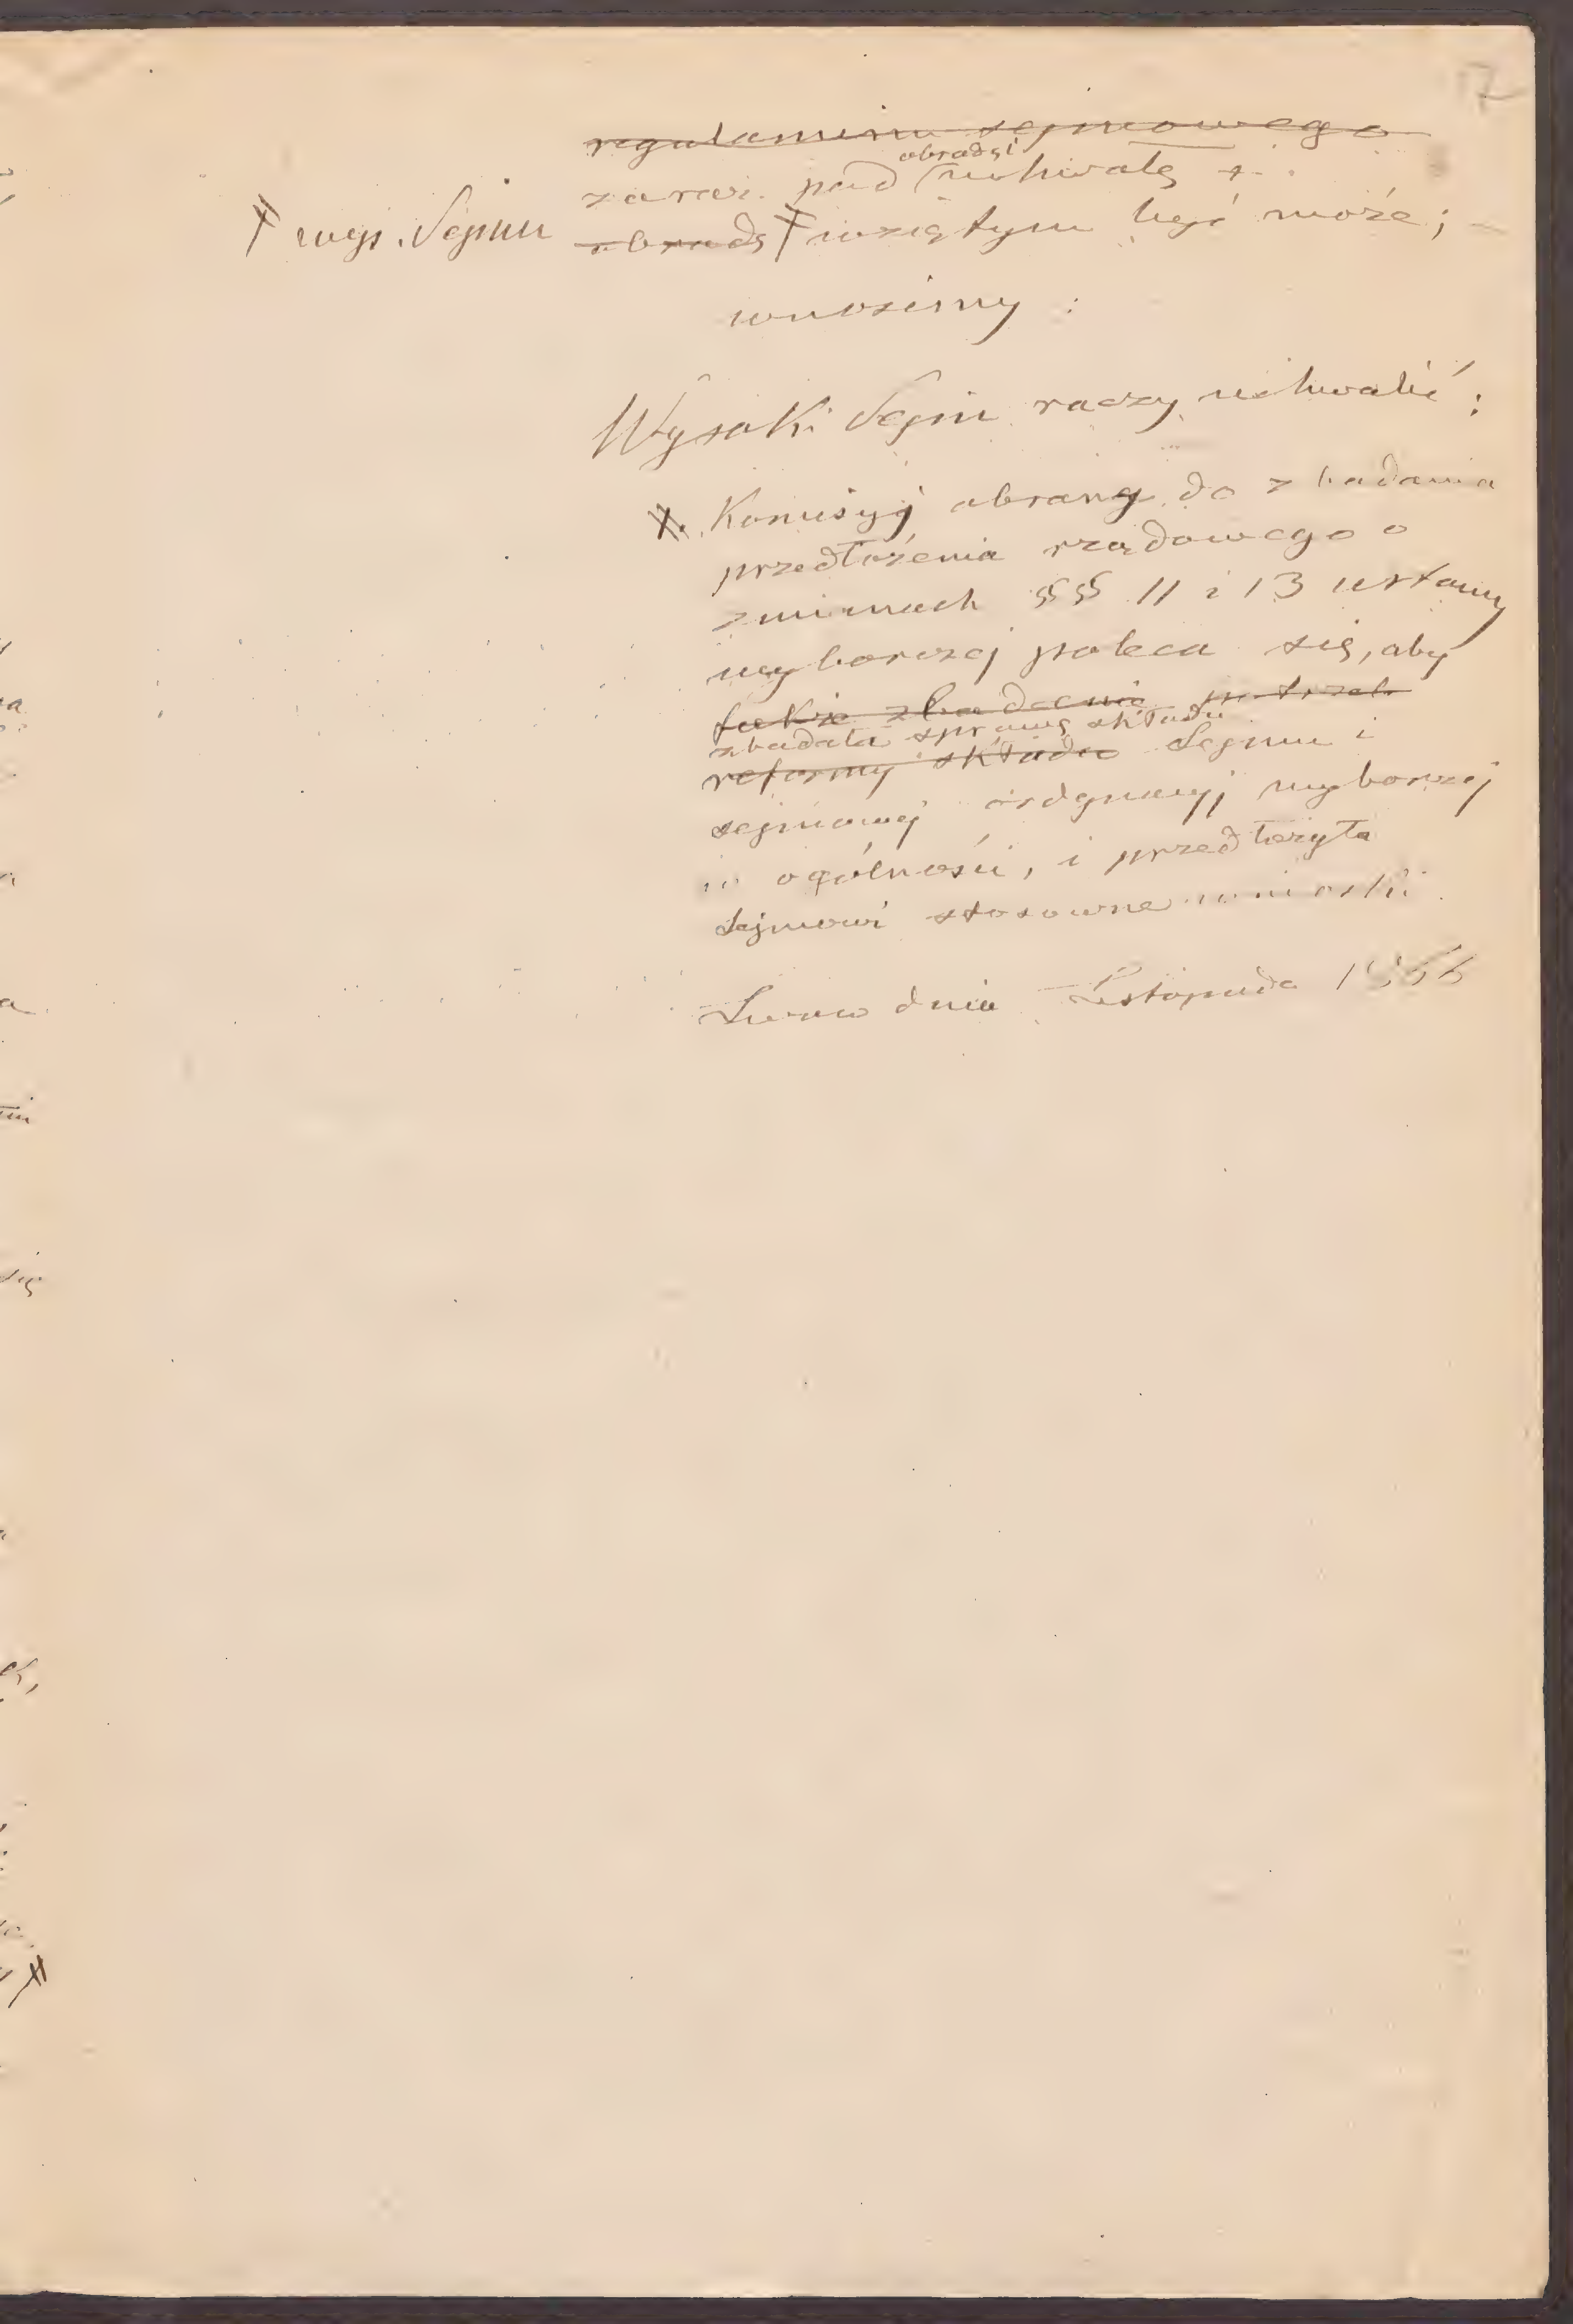 17
regulaminu sejmowego
obradę i
zaraz pod uchwałę +
╫ wys. Sejmu
obradę ╫ wziętym być może;
wnosimy :
Wysoki Sejm raczy uchwalić :
Komisyj obranej do zbadania
przedłożenia rządowego o
zmianach §§ 11 i 13 ustawy
wyborczej poleca się, aby
także zbadanie potrzeb
zbadała sprawę składu
reformy składu Sejmu i
sejmowej ordynacyj wyborczej
w ogólności, i przedłożyła
Sejmowi stosowne wnioski.
Lwow dnia Listopada 1866